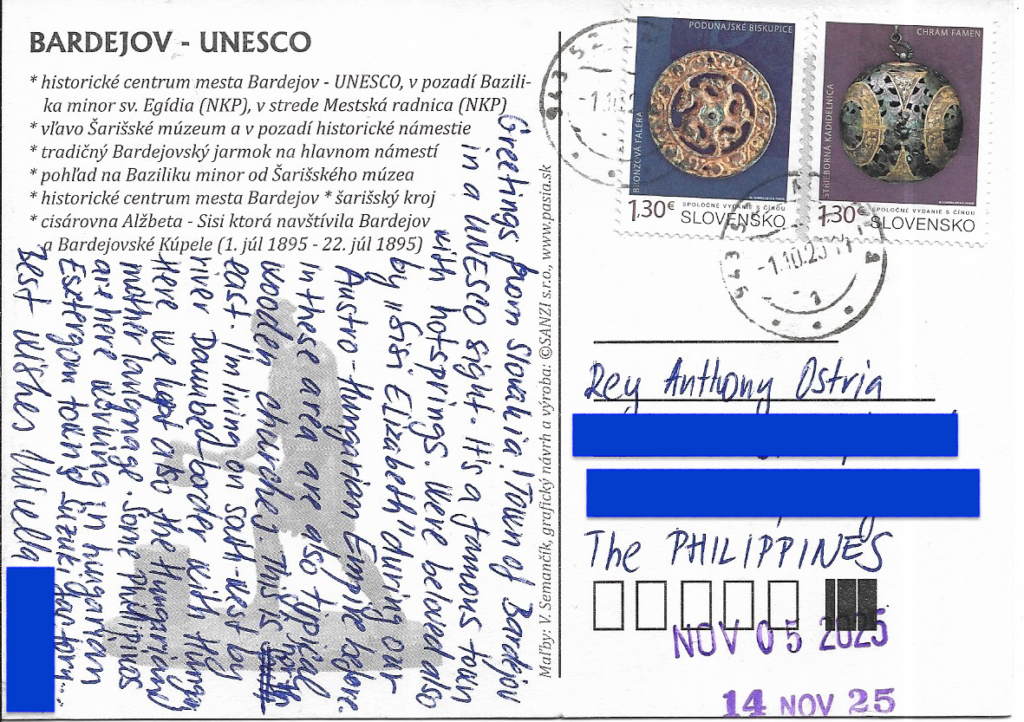 BARDEJOV - UNESCO
* historické centrum mesta Bardejov - UNESCO, v pozadí Bazili-
ka minor sv. Egídia (NKP), v strede Mestská radnica (NKP)
* vľavo Šarišské múzeum a v pozadí historické námestie
* tradičný Bardejovský jarmok na hlavnom námestí
* pohľad na Baziliku minor od Šarišského múzea
* historické centrum Bardejov * šarišský kroj
* cisárovna Alžbeta - Sisi ktorá navštívila Bardejov
a Bardejovské Kúpele (1. júl 1895 - 22. júl 1895)
Greetings from Slovakia! Town of Bardejov
in a UNESCO sight. It's a famous town
with hotsprings. Were beloved also
by "Sisi Elizabeth" during our
Austro-Hungarian Empire before.
In these area are also typical
wooden churches. This is north
east. I'm living on south-west by
river Danube border with Hungary
Here we also the Hungarian
mother language. Some Philippinos
are here working in hungarian
Esztergom town Suzuki factory..
Best wishes
Maľby: V. Semančík, grafický návrh a výroba: ©SANZI s.r.o., www.pasia.sk
PODUNAJSKÉ BISKUPICE
BRONZOVÁ FALÉRA
1.30€
SPOLOČNÉ VYDANIE S ČÍNOU
SLOVENSKO
CHRÁM FAMEN
STRIEBORNÁ KADIDELNICA
1.30€
SPOLOČNÉ VYDANIE S ČÍNOU
SLOVENSKO
943 52
-1.10.2
943 5
-1.10.25
1
Rey Anthony Ostria
The PHILIPPINES
NOV 05 2025
14 NOV 25